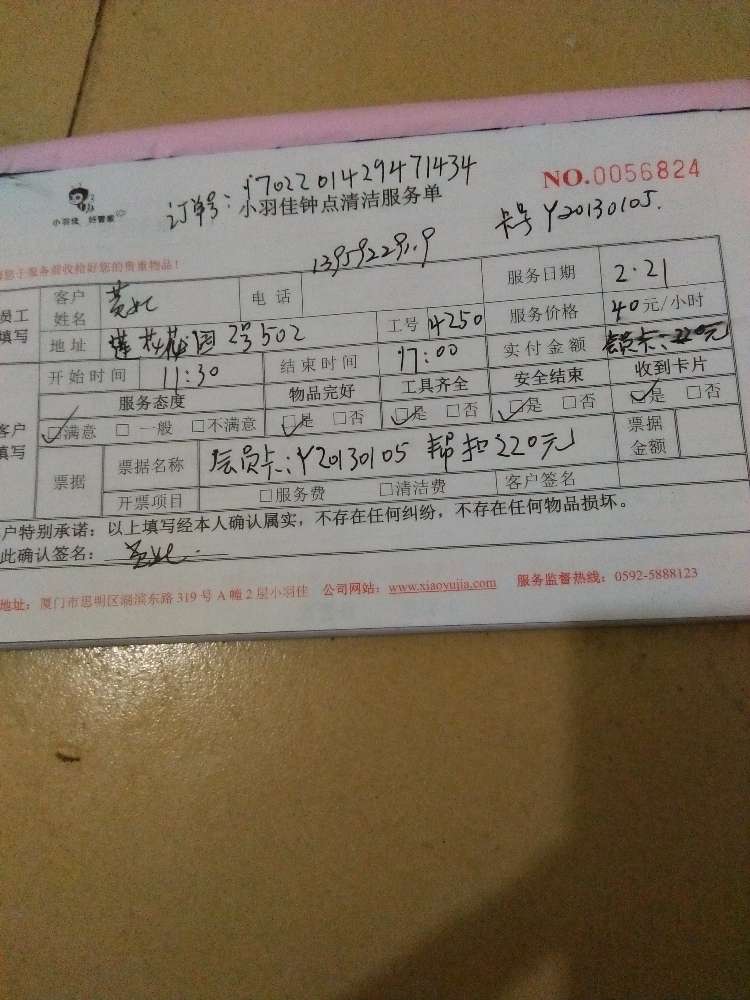 订单号：Y702201429471434
NO.0056824
小羽佳 好管家
小羽佳钟点清洁服务单
卡号 Y20130105.
您于服务前收拾好您的贵重物品！
员工填写 客户姓名 黄 电话 服务日期 2.21
地址 莲花花园 2号502 工号 4250 服务价格 40元/小时
开始时间 11:30 结束时间 17:00 实付金额 会员卡：220元
服务态度 物品完好 工具齐全 安全结束 收到卡片
客户填写 ☑满意 □一般 □不满意 ☑是 □否 ☑是 □否 ☑是 □否 ☑是 □否
票据 票据名称 会员卡：Y20130105 帮扣220元 票据金额
开票项目 □服务费 □清洁费 客户签名
户特别承诺：以上填写经本人确认属实，不存在任何纠纷，不存在任何物品损坏。
此确认签名：
地址：厦门市思明区湖滨东路319号A幢2层小羽佳 公司网站：www.xiaoyujia.com 服务监督热线：0592-5888123